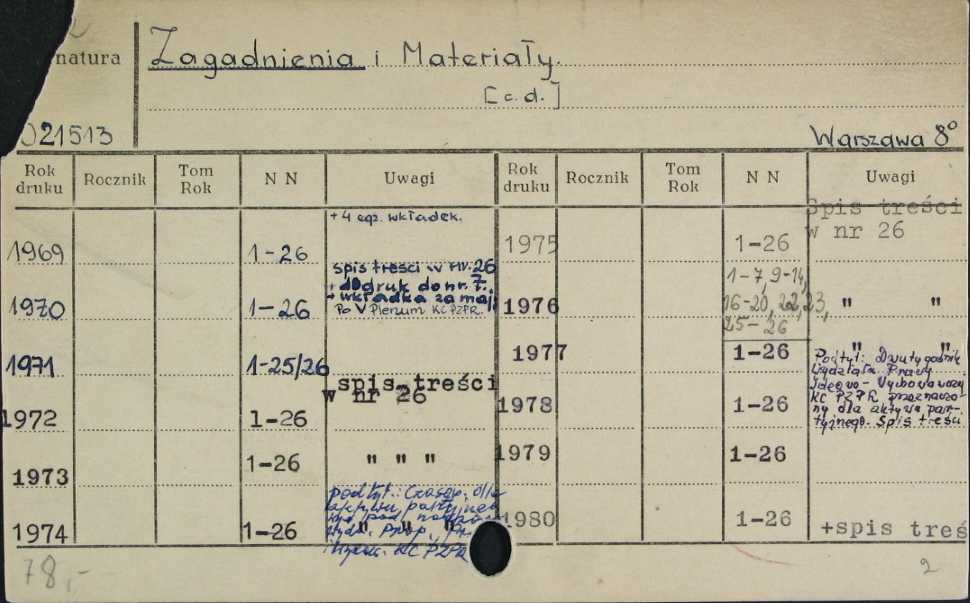 natura
Zagadnienia i Materiały.
[c.d.]
021513
Warszawa 8°
Rok druku Rocznik Tom Rok N N Uwagi Rok druku Rocznik Tom Rok N N Uwagi
1969 1-26 + 4 egz. wkładek.
1970 1-26 spis treści w nr. 26
+ dodruk do nr. 7.
+ wkładka za maj
Po V Plenum KC PZPR.
1971 1-25/26
1972 1-26 spis treści
w nr 26
1973 1-26 " " "
1974 1-26 podtyt.: Czasop. dla
" " "
KC PZPR
1975 1-26 Spis treści
w nr 26
1976 1-7, 9-14,
16-20, 22, 23,
25-26 " "
1977 1-26 " "
1978 1-26 Podtyt: Dwutygodnik
Wydziału Pracy
Ideowo-Wychowawczej
KC PZPR przeznaczo-
ny dla aktywu par-
tyjnego. Spis treści
1979 1-26
1980 1-26 +spis treś
78,-
2